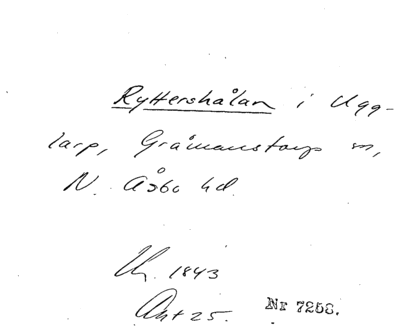 Ryttershålan i Ugg-
larp, Gråmanstorps sn,
N. Åsbo hd.
1843
Akt 25. Nr 7258.